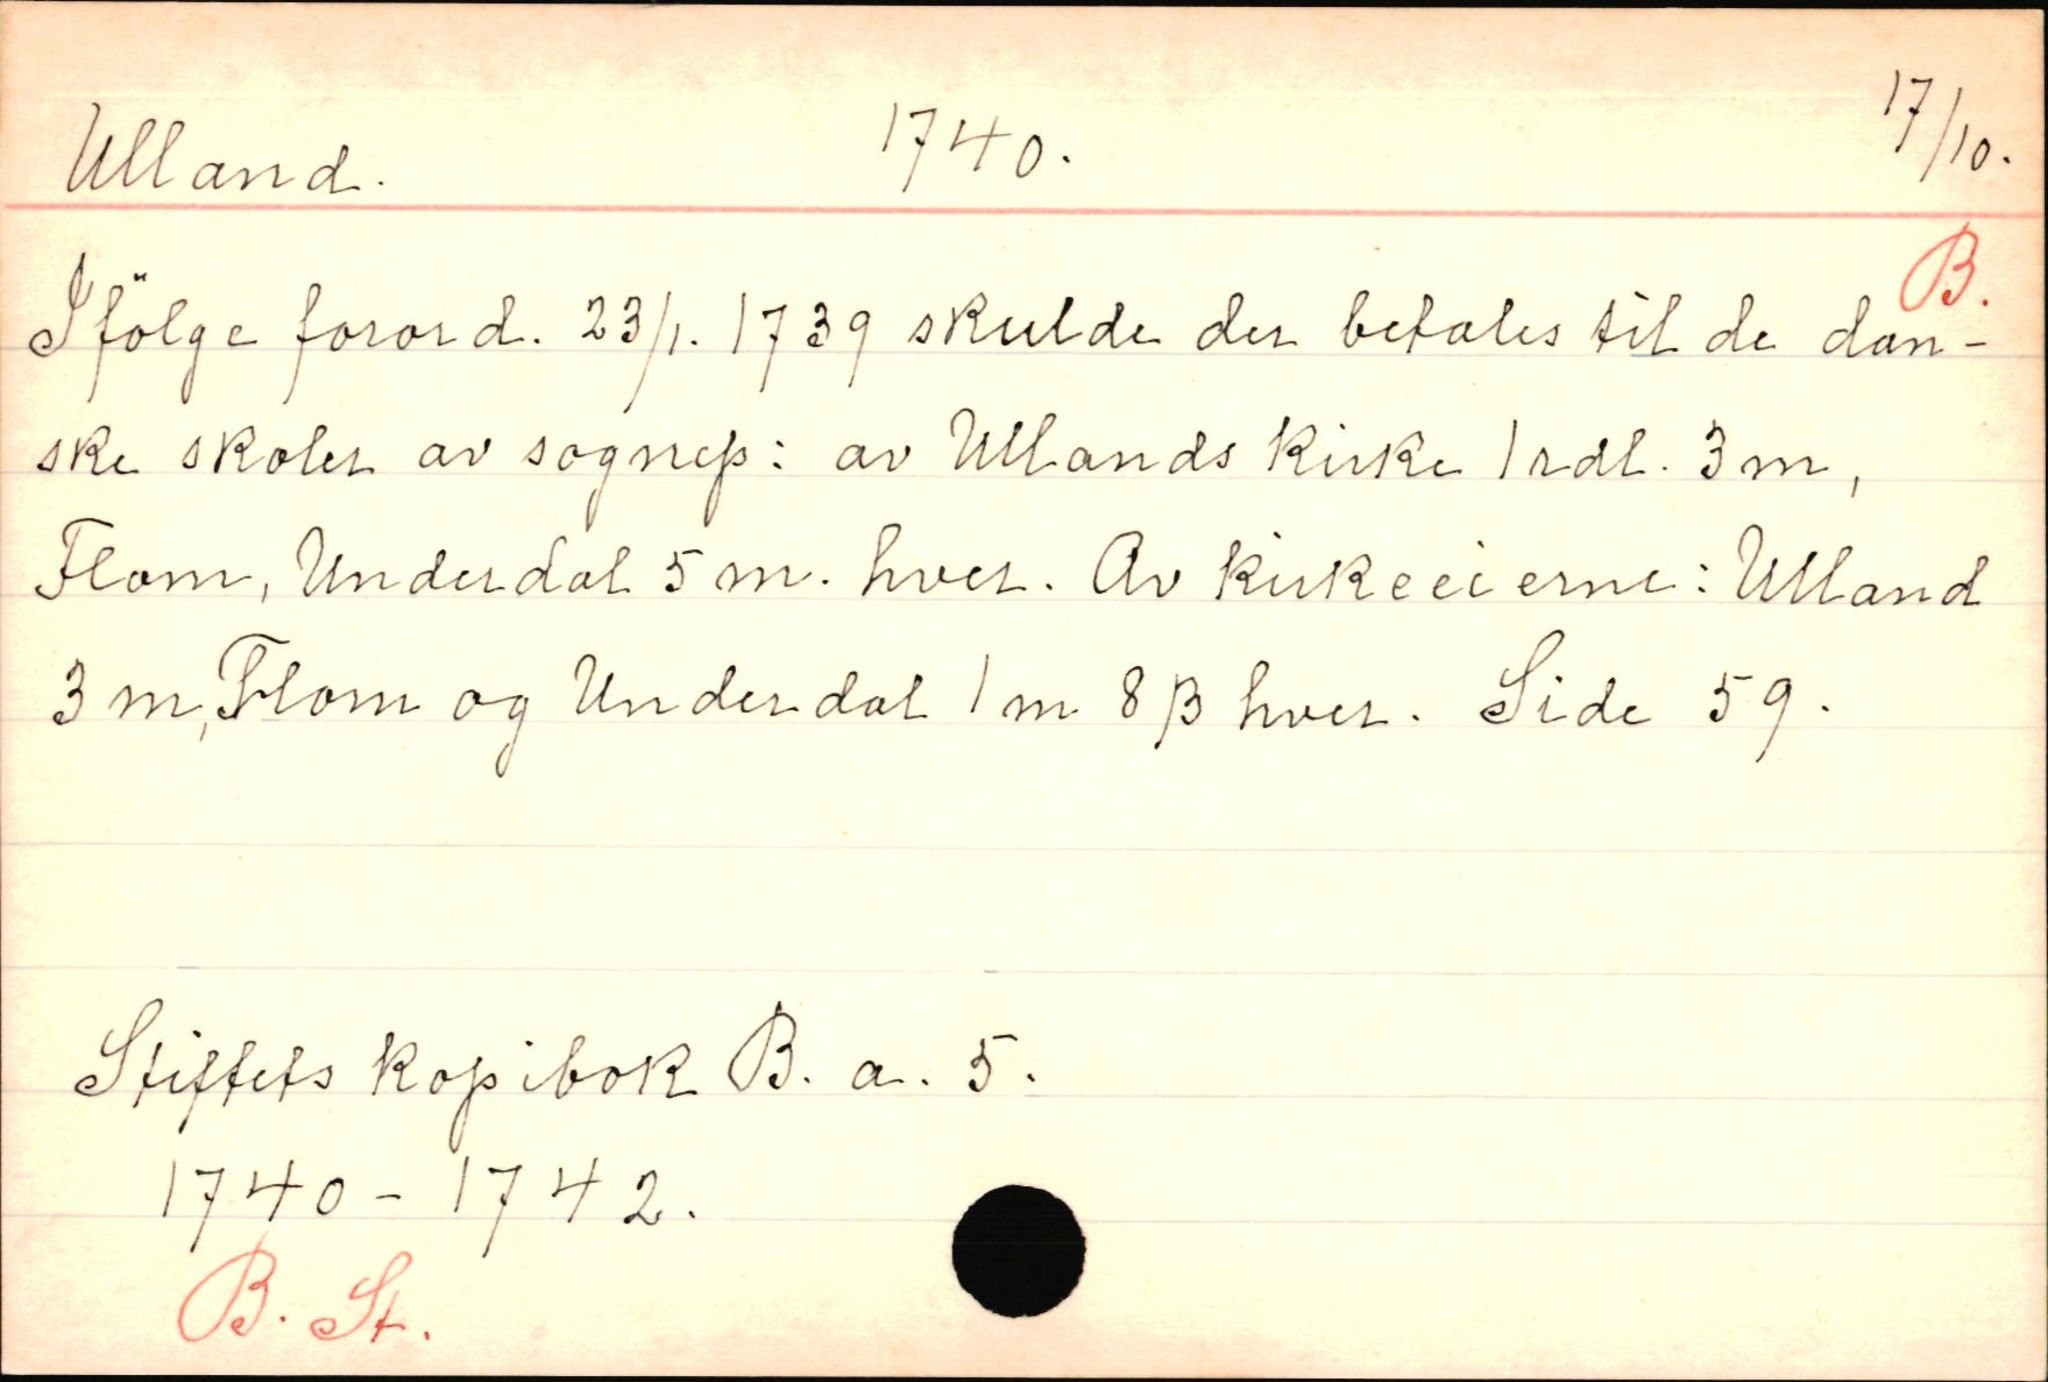 Ulland. 1740. 17/10.
B.
Ifölge forord. 23/1. 1739 skulde der betales til de dan-
ske skoler av sognep: av Ullands kirke 1 rdl. 3 m,
Flom, Underdal 5 m. hver. Av kirkeeierne: Ulland
3 m, Flom og Underdal 1 m 8 β hver. Side 59.
Stiftets kopibok B. a. 5.
1740-1742.
B. St.